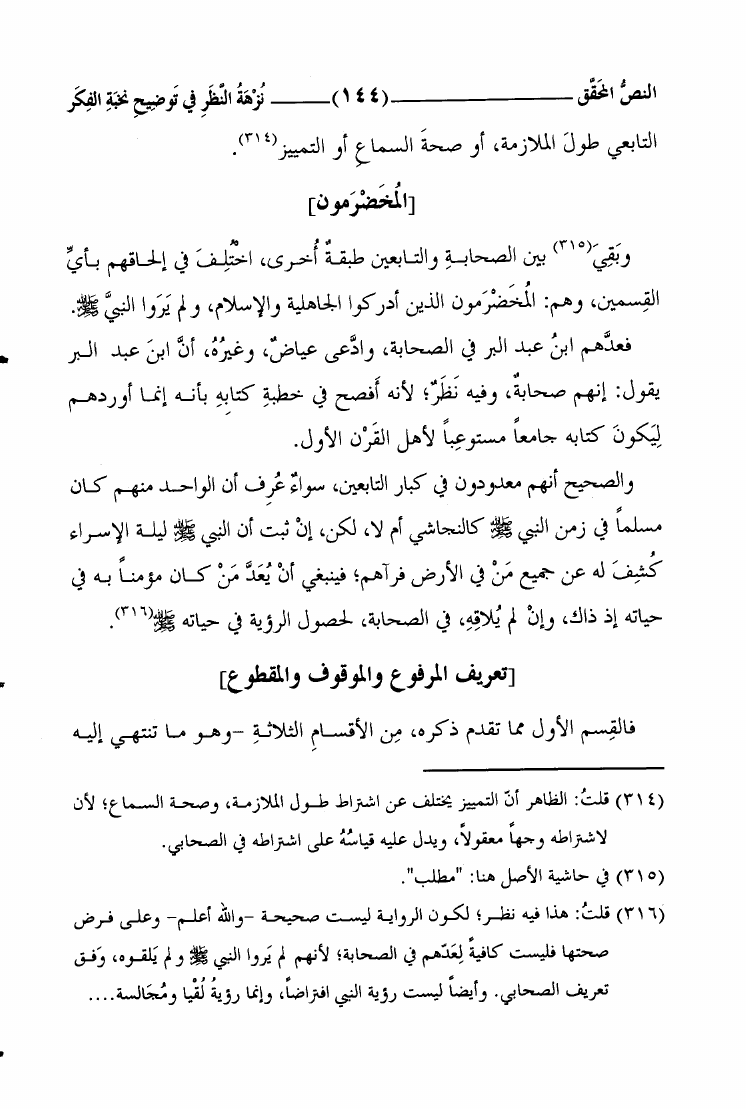 النصُّ المحَقَّق ــــــــــــــــ (١٤٤) ــــــــ نُزْهَةُ النَّظَرِ في تَوضِيحِ نخبَةِ الفِكَر
التابعي طولَ الملازمة، أو صحةَ السماعِ أو التمييز(٣١٤).
[المُخَضْرَمون]
وبَقِيَ(٣١٥) بين الصحابـةِ والتـابعين طبقـةٌ أُخـرى، اخْتُلِـفَ في إلحـاقهم بـأيِّ
القِسمين، وهم: المُخَضْرَمون الذين أدركوا الجاهلية والإسلام، ولم يَرَوا النبيَّ ﷺ.
فعدَّهم ابنُ عبد البر في الصحابة، وادَّعى عياضٌ، وغيرُهُ، أنَّ ابنَ عبد البر
يقول: إنهم صحابةٌ، وفيه نَظَرٌ؛ لأنه أَفصح في خطبةِ كتابِهِ بأنـه إنمـا أوردهـم
لِيَكونَ كتابه جامعاً مستوعِباً لأهل القَرْن الأول.
والصحيح أنهم معدودون في كبار التابعين، سواءٌ عُرِف أن الواحـد منهـم كـان
مسلماً في زمن النبي ﷺ كالنجاشي أم لا، لكن، إنْ ثبت أن النبي ﷺ ليلـة الإسـراء
كُشِفَ له عن جميع مَنْ في الأرض فرآهم؛ فينبغي أنْ يُعَدَّ مَنْ كـان مؤمنـاً بـه في
حياته إذ ذاك، وإنْ لم يُلاقِهِ، في الصحابة، لحصول الرؤية في حياته ﷺ(٣١٦).
[تعريف المرفوع والموقوف والمقطوع]
فالقِسم الأول مما تقدم ذكره، مِن الأقسـامِ الثلاثـةِ -وهـو مـا تنتهـي إليـه
(٣١٤) قلتُ: الظاهر أنّ التمييز يختلف عن اشتراط طـول الملازمـة، وصحـة السـماع؛ لأن
لاشتراطه وجهاً معقولاً، ويدل عليه قياسُهُ على اشتراطه في الصحابي.
(٣١٥) في حاشية الأصل هنا: "مطلب".
(٣١٦) قلتُ: هذا فيه نظـر؛ لكـون الروايـة ليسـت صحيحـة -والله أعلـم- وعلـى فـرض
صحتها فليست كافيةً لِعَدّهم في الصحابة؛ لأنهم لم يَروا النبي ﷺ ولم يَلقـوه، وَفـق
تعريف الصحابي. وأيضاً ليست رؤية النبي افتراضاً، وإنما رؤيةُ لُقْيا ومُجَالسة....